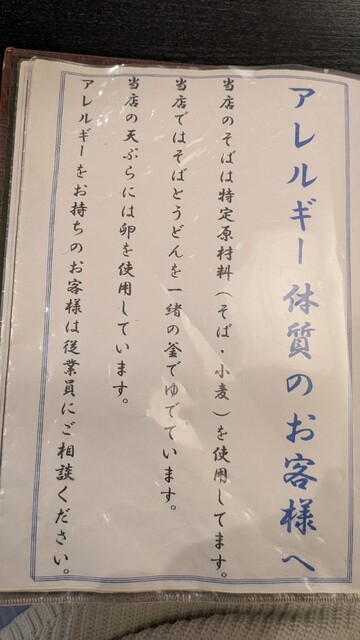 アレルギー体質のお客様へ
当店のそばは特定原材料（そば・小麦）を使用してます。
当店ではそばとうどんを一緒の釜でゆでています。
当店の天ぷらには卵を使用しています。
アレルギーをお持ちのお客様は従業員にご相談ください。